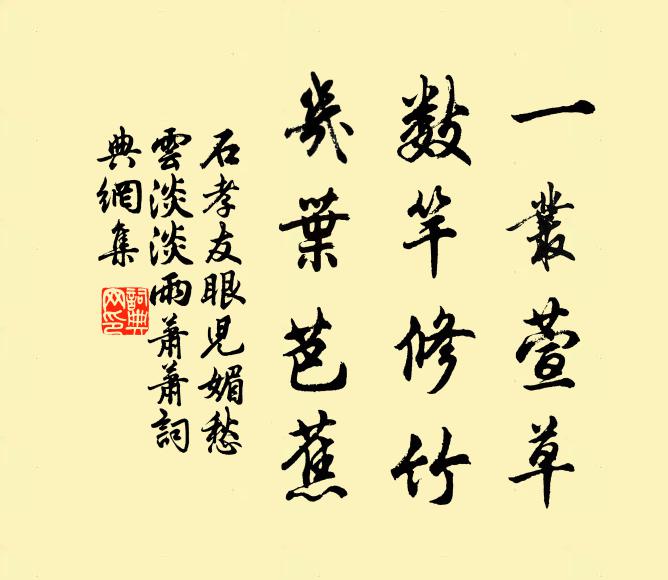 一叢萱草
數竿修竹
幾葉芭蕉
石孝友眼兒媚愁
雲淡淡雨蕭蕭詞
典網集
詞典
网印